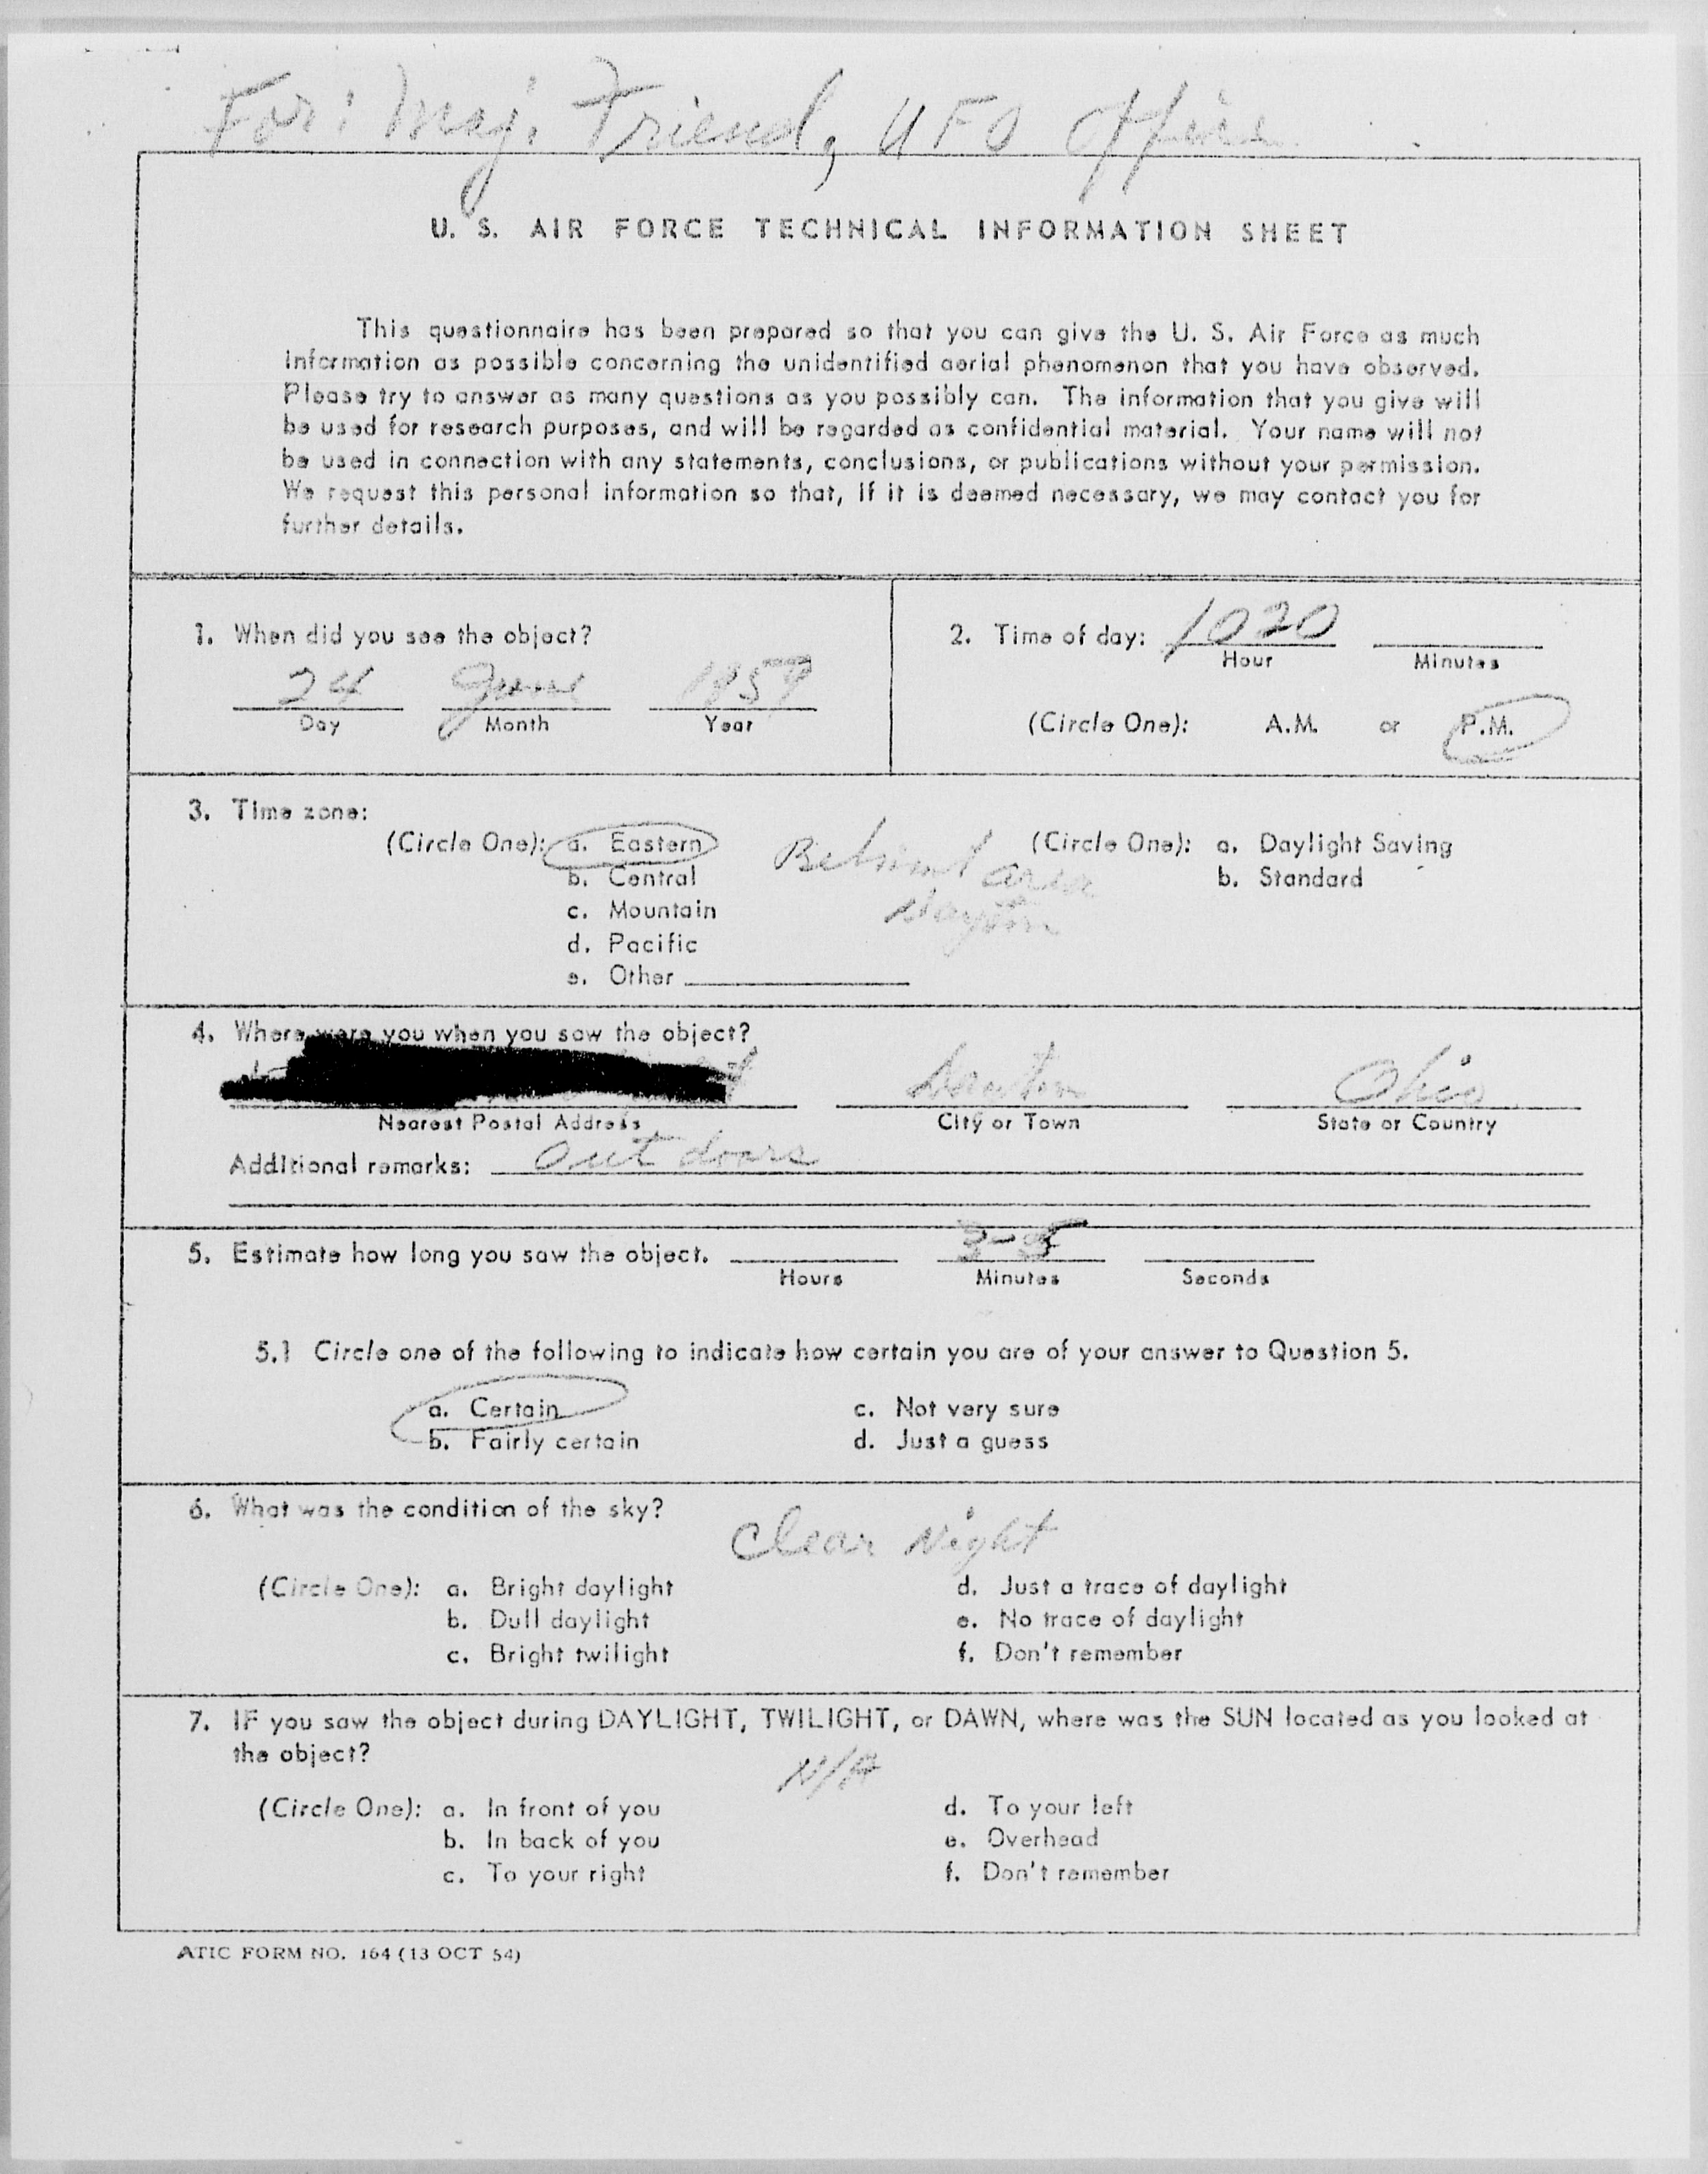 For: Maj. Friend, UFO Office
U. S. AIR FORCE TECHNICAL INFORMATION SHEET
This questionnaire has been prepared so that you can give the U. S. Air Force as much
information as possible concerning the unidentified aerial phenomenon that you have observed.
Please try to answer as many questions as you possibly can. The information that you give will
be used for research purposes, and will be regarded as confidential material. Your name will not
be used in connection with any statements, conclusions, or publications without your permission.
We request this personal information so that, if it is deemed necessary, we may contact you for
further details.
1. When did you see the object?
24 June 1959
Day Month Year
2. Time of day: 1020
Hour Minutes
(Circle One): A.M. or P.M.
3. Time zone:
(Circle One): a. Eastern
b. Central
c. Mountain
d. Pacific
e. Other
area
Dayton
(Circle One): a. Daylight Saving
b. Standard
4. Where were you when you saw the object?
Dayton Ohio
Nearest Postal Address City or Town State or Country
Additional remarks: Out doors
5. Estimate how long you saw the object. 3-5
Hours Minutes Seconds
5.1 Circle one of the following to indicate how certain you are of your answer to Question 5.
a. Certain c. Not very sure
b. Fairly certain d. Just a guess
6. What was the condition of the sky?
Clear Night
(Circle One): a. Bright daylight d. Just a trace of daylight
b. Dull daylight e. No trace of daylight
c. Bright twilight f. Don't remember
7. IF you saw the object during DAYLIGHT, TWILIGHT, or DAWN, where was the SUN located as you looked at
the object?
N/A
(Circle One): a. In front of you d. To your left
b. In back of you e. Overhead
c. To your right f. Don't remember
ATIC FORM NO. 164 (13 OCT 54)